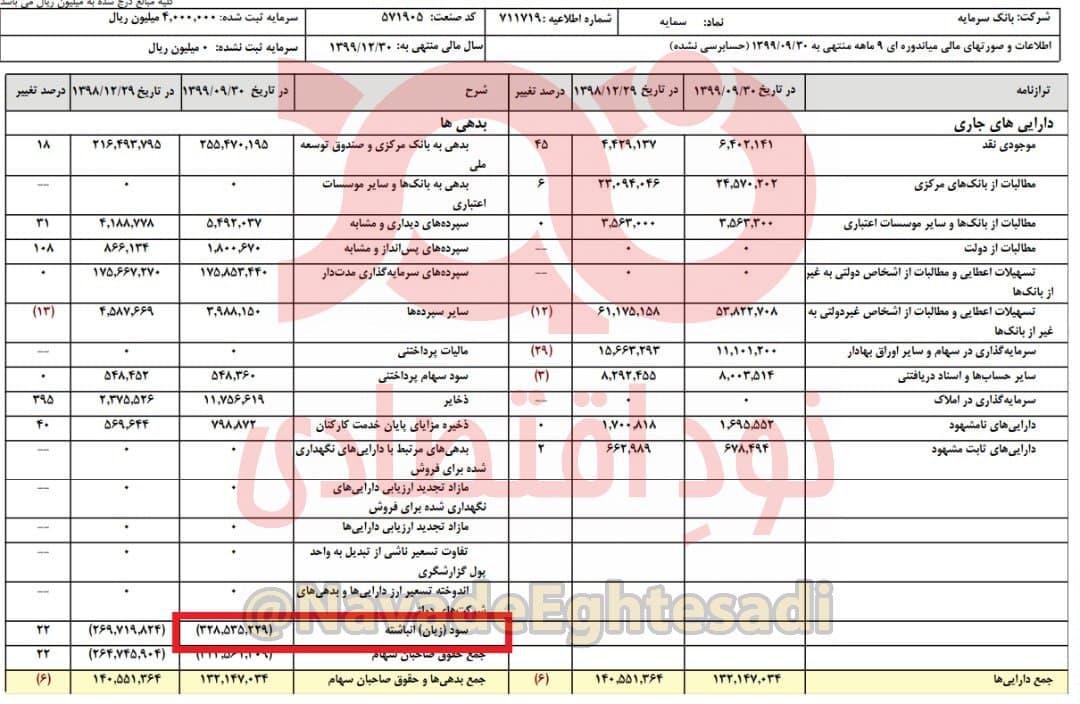 کلیه مبالغ درج شده به میلیون ریال می باشد
شرکت: بانک سرمایه نماد: سمایه شماره اطلاعیه : ۷۱۱۷۱۹ کد صنعت: ۵۷۱۹۰۵ سرمایه ثبت شده: ۴,۰۰۰,۰۰۰ میلیون ریال
اطلاعات و صورتهای مالی میاندوره ای ۹ ماهه منتهی به ۱۳۹۹/۰۹/۳۰ (حسابرسی نشده) سال مالی منتهی به: ۱۳۹۹/۱۲/۳۰ سرمایه ثبت نشده: ۰ میلیون ریال
ترازنامه در تاریخ ۱۳۹۹/۰۹/۳۰ در تاریخ ۱۳۹۸/۱۲/۲۹ درصد تغییر شرح در تاریخ ۱۳۹۹/۰۹/۳۰ در تاریخ ۱۳۹۸/۱۲/۲۹ درصد تغییر
دارایی های جاری بدهی ها
موجودی نقد ۶,۴۰۲,۱۴۱ ۴,۴۲۹,۱۳۷ ۴۵ بدهی به بانک مرکزی و صندوق توسعه ۲۵۵,۴۷۰,۱۹۵ ۲۱۶,۴۹۳,۷۹۵ ۱۸
ملی
مطالبات از بانک‌های مرکزی ۲۴,۵۷۰,۲۰۲ ۲۳,۰۹۴,۰۴۶ ۶ بدهی به بانک‌ها و سایر موسسات ۰ ۰ ---
اعتباری
مطالبات از بانک‌ها و سایر موسسات اعتباری ۳,۵۶۳,۳۰۰ ۳,۵۶۳,۰۰۰ ۰ سپرده‌های دیداری و مشابه ۵,۴۹۲,۰۳۷ ۴,۱۸۸,۷۷۸ ۳۱
مطالبات از دولت ۰ ۰ --- سپرده‌های پس‌انداز و مشابه ۱,۸۰۰,۶۷۰ ۸۶۶,۱۳۴ ۱۰۸
تسهیلات اعطایی و مطالبات از اشخاص دولتی به غیر ۰ ۰ --- سپرده‌های سرمایه‌گذاری مدت‌دار ۱۷۵,۸۵۳,۴۴۰ ۱۷۵,۶۶۷,۲۷۰ ۰
از بانک‌ها
تسهیلات اعطایی و مطالبات از اشخاص غیردولتی به ۵۳,۸۲۲,۷۰۸ ۶۱,۱۷۵,۱۵۸ (۱۲) سایر سپرده‌ها ۳,۹۸۸,۱۵۰ ۴,۵۸۷,۶۶۹ (۱۳)
غیر از بانک‌ها
سرمایه‌گذاری در سهام و سایر اوراق بهادار ۱۱,۱۰۱,۲۰۰ ۱۵,۶۶۳,۲۹۳ (۲۹) مالیات پرداختنی ۰ ۰ ---
سایر حساب‌ها و اسناد دریافتنی ۸,۰۰۳,۵۱۴ ۸,۲۹۲,۴۵۵ (۳) سود سهام پرداختنی ۵۴۸,۳۶۰ ۵۴۸,۴۵۲ ۰
سرمایه‌گذاری در املاک ۰ ۰ --- ذخایر ۱۱,۷۵۶,۶۱۹ ۲,۳۷۵,۵۲۶ ۳۹۵
دارایی‌های نامشهود ۱,۶۹۵,۵۵۲ ۱,۷۰۰,۸۱۸ ۰ ذخیره مزایای پایان خدمت کارکنان ۷۹۸,۸۷۲ ۵۶۹,۶۴۴ ۴۰
دارایی‌های ثابت مشهود ۶۷۸,۴۹۴ ۶۶۲,۹۸۹ ۲ بدهی‌های مرتبط با دارایی‌های نگهداری ۰ ۰ ---
شده برای فروش
مازاد تجدید ارزیابی دارایی‌های ۰ ۰ ---
نگهداری شده برای فروش
مازاد تجدید ارزیابی دارایی‌ها ۰ ۰ ---
تفاوت تسعیر ناشی از تبدیل به واحد ۰ ۰ ---
پول گزارشگری
اندوخته تسعیر ارز دارایی‌ها و بدهی‌های ۰ ۰ ---
سود (زیان) انباشته (۳۲۸,۵۳۵,۲۲۹) (۲۶۹,۷۱۹,۸۲۴) ۲۲
جمع حقوق صاحبان سهام (۲۶۴,۷۴۵,۹۰۴) ۲۲
جمع دارایی‌ها ۱۳۲,۱۴۷,۰۳۴ ۱۴۰,۵۵۱,۳۶۴ (۶) جمع بدهی‌ها و حقوق صاحبان سهام ۱۳۲,۱۴۷,۰۳۴ ۱۴۰,۵۵۱,۳۶۴ (۶)
نود اقتصادی
@NavadeEghtesadi